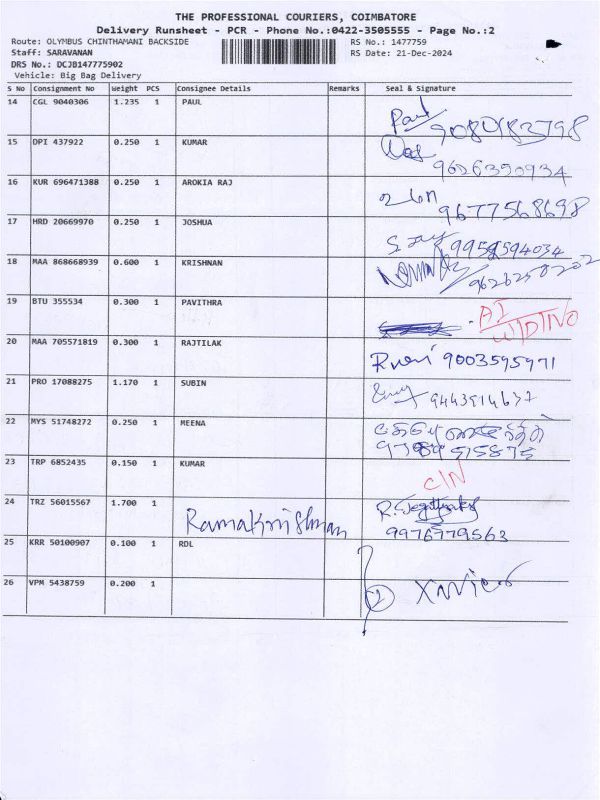 THE PROFESSIONAL COURIERS, COIMBATORE
Delivery Runsheet - PCR - Phone No.:0422-3505555 - Page No.:2
Route: OLYMBUS CHINTHAMANI BACKSIDE RS No.: 1477759
Staff: SARAVANAN RS Date: 21-Dec-2024
DRS No.: DCJB147775902
Vehicle: Big Bag Delivery
S No Consignment No Weight PCS Consignee Details Remarks Seal & Signature
14 CGL 9040306 1.235 1 PAUL Paul
9080183798
15 DPI 437922 0.250 1 KUMAR
9626350934
16 KUR 696471388 0.250 1 AROKIA RAJ
9677568698
17 HRD 20669970 0.250 1 JOSHUA
9959594034
18 MAA 868668939 0.600 1 KRISHNAN
9626258202
19 BTU 355534 0.300 1 PAVITHRA
20 MAA 705571819 0.300 1 RAJTILAK 9003595971
21 PRO 17088275 1.170 1 SUBIN
9443914637
22 MYS 51748272 0.250 1 MEENA
23 TRP 6852435 0.150 1 KUMAR C/N
24 TRZ 56015567 1.700 1
Ramakrishnan
9976779563
25 KRR 50100907 0.100 1 RDL
26 VPM 5438759 0.200 1 2 Xavier